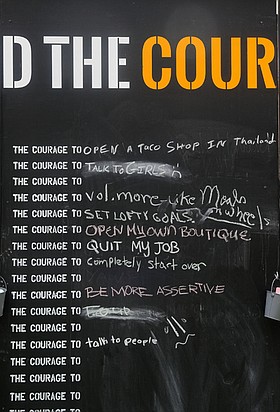 D THE COUR
THE COURAGE TO OPEN A TACO SHOP IN Thailand
THE COURAGE TO TALK TO GIRLS
THE COURAGE TO
THE COURAGE TO vol. more-like Meals on wheels
THE COURAGE TO SET LOFTY GOALS.
THE COURAGE TO OPEN MY OWN BOUTIQUE
THE COURAGE TO QUIT MY JOB
THE COURAGE TO completely start over
THE COURAGE TO
THE COURAGE TO BE MORE ASSERTIVE
THE COURAGE TO
THE COURAGE TO
THE COURAGE TO talk to people
THE COURAGE TO
THE COURAGE TO
THE COURAGE TO